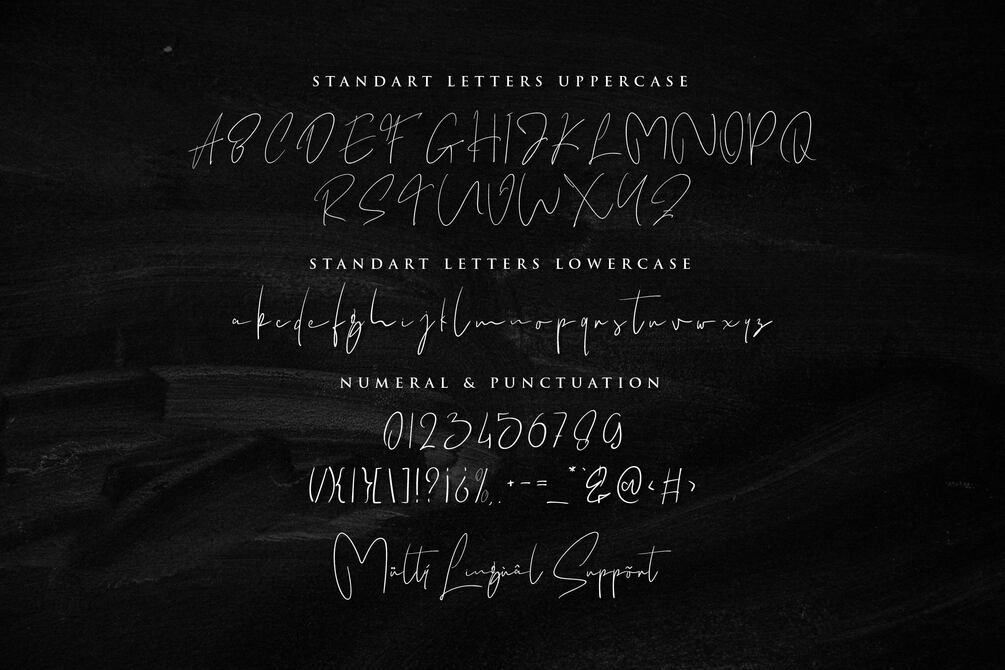 STANDART LETTERS UPPERCASE
ABCDEFGHIJKLMNOPQ
RSTUVWXYZ
STANDART LETTERS LOWERCASE
abcdefghijklmnopqrstuvwxyz
NUMERAL & PUNCTUATION
0123456789
(/){|}[\]!?¡¿%,.+-=_*`&@<#>
Mültý Lingùâl Suppõrt